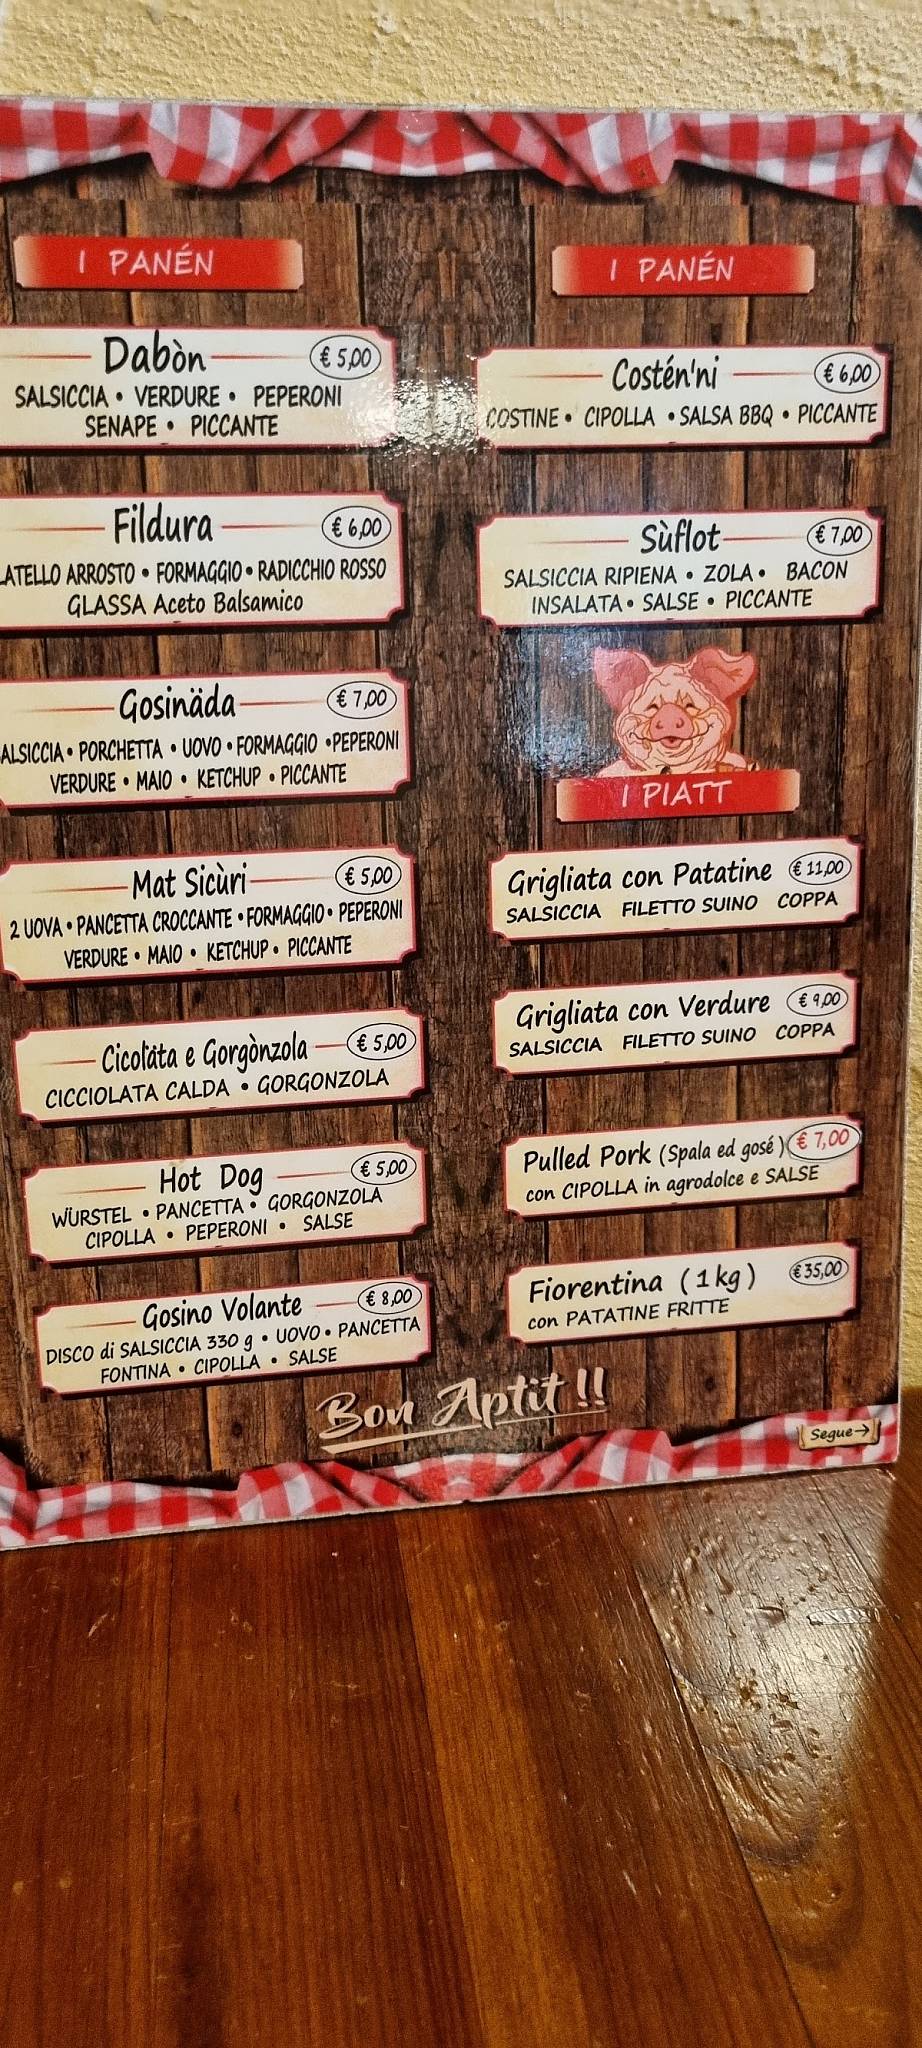 I PANÉN
Dabòn € 5,00
SALSICCIA • VERDURE • PEPERONI
SENAPE • PICCANTE
Fildura € 6,00
ARROSTO • FORMAGGIO • RADICCHIO ROSSO
GLASSA Aceto Balsamico
Gosinäda € 7,00
• PORCHETTA • UOVO • FORMAGGIO • PEPERONI
VERDURE • MAIO • KETCHUP • PICCANTE
Mat Sicùri € 5,00
2 UOVA • PANCETTA CROCCANTE • FORMAGGIO • PEPERONI
VERDURE • MAIO • KETCHUP • PICCANTE
Cicoläta e Gorgònzola € 5,00
CICCIOLATA CALDA • GORGONZOLA
Hot Dog € 5,00
WÜRSTEL • PANCETTA • GORGONZOLA
CIPOLLA • PEPERONI • SALSE
Gosino Volante € 8,00
DISCO di SALSICCIA 330 g • UOVO • PANCETTA
FONTINA • CIPOLLA • SALSE
I PANÉN
Costén'ni € 6,00
COSTINE • CIPOLLA • SALSA BBQ • PICCANTE
Sùflot € 7,00
SALSICCIA RIPIENA • ZOLA • BACON
INSALATA • SALSE • PICCANTE
I PIATT
Grigliata con Patatine € 11,00
SALSICCIA FILETTO SUINO COPPA
Grigliata con Verdure € 9,00
SALSICCIA FILETTO SUINO COPPA
Pulled Pork (Spala ed gosé) € 7,00
con CIPOLLA in agrodolce e SALSE
Fiorentina (1kg) € 35,00
con PATATINE FRITTE
Bon Aptit !!
Segue→